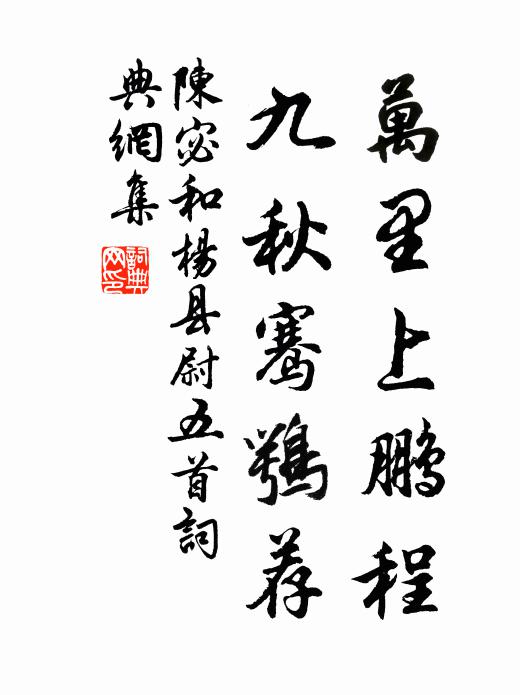 萬里上鵬程
九秋騫鶚荐
陳宓和楊县尉五首詞
典網集
詞典
网印